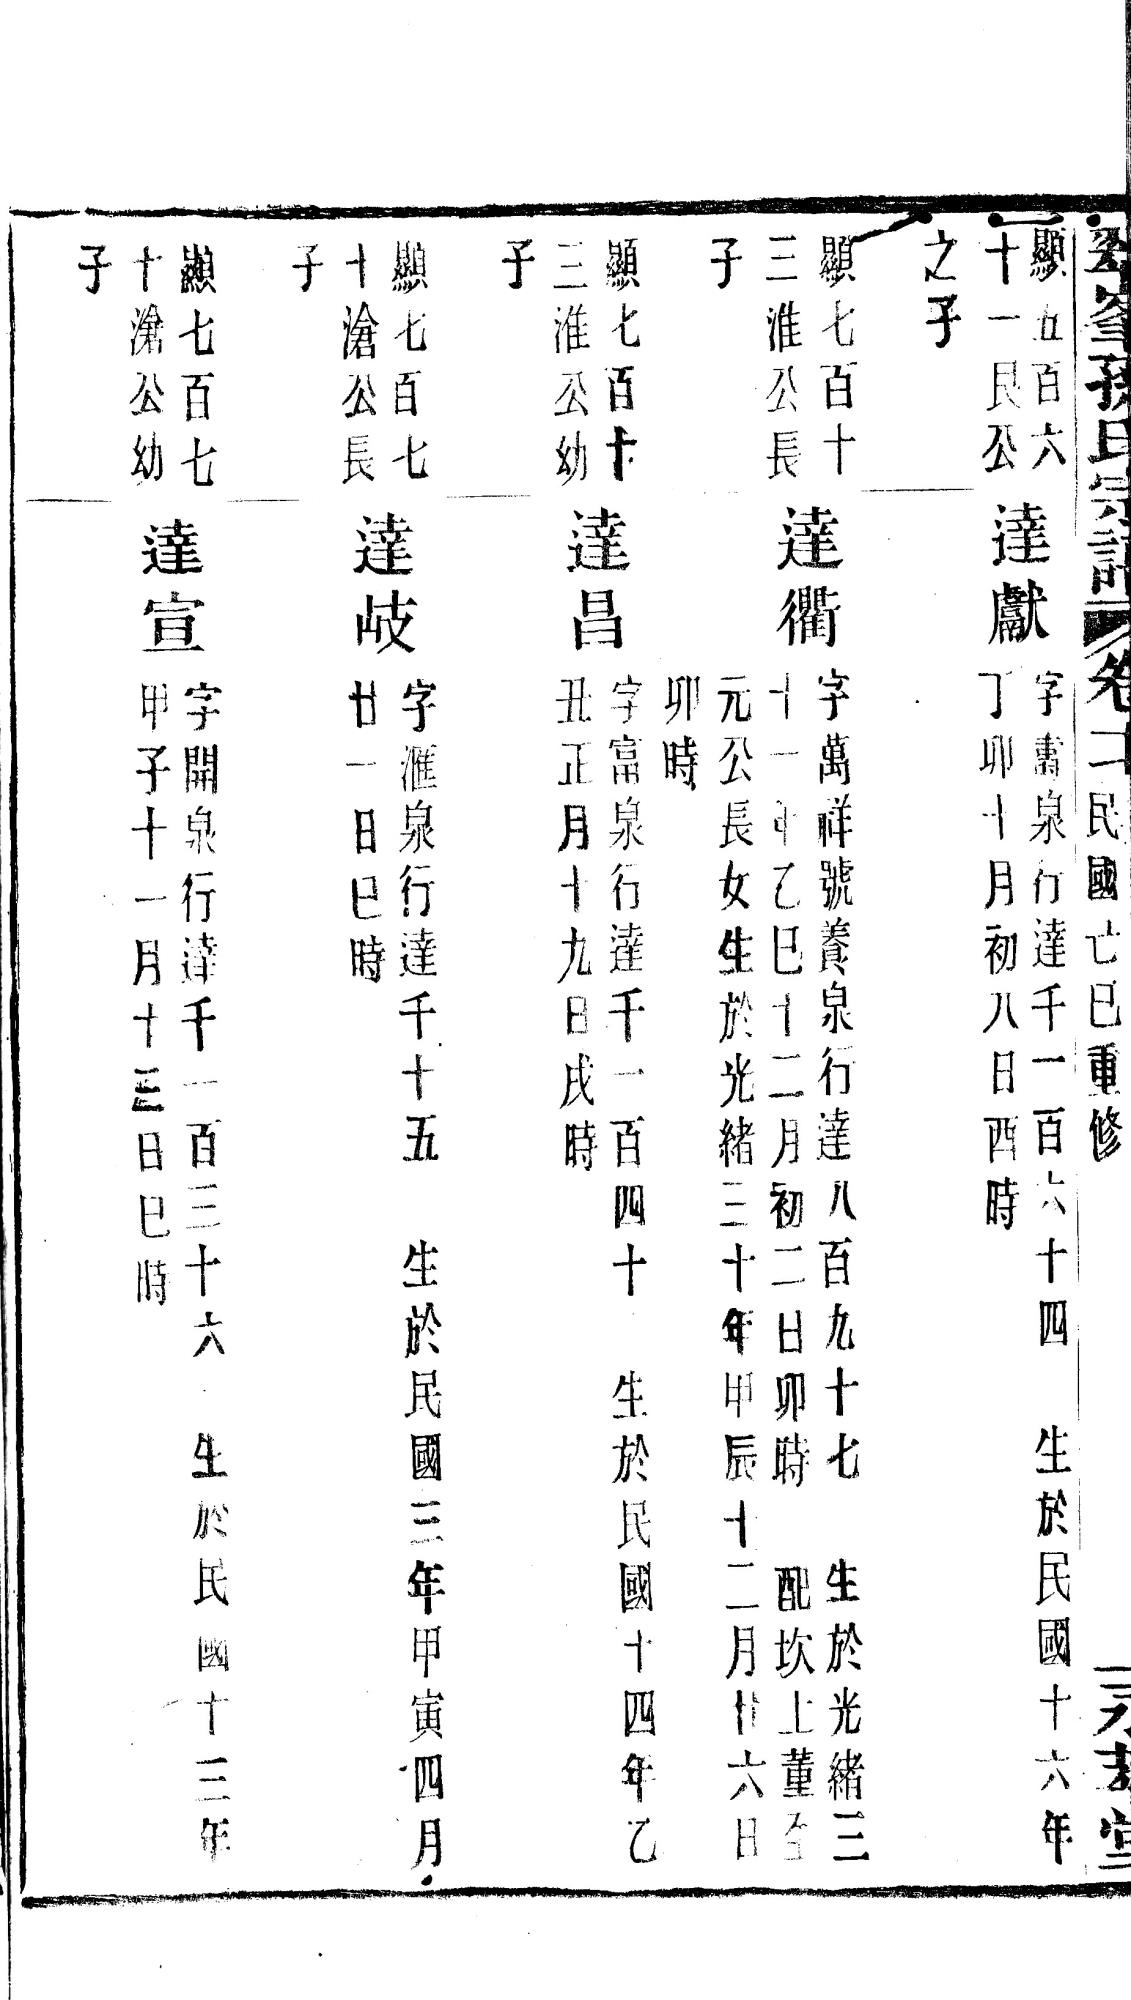 孫氏宗譜 卷二 民國亡巳重修 堂
顯五百六
十一艮公
之子
達獻
字肅泉行達千一百六十四 生於民國十六年
丁卯十月初八日酉時
顯七百十
三淮公長
子
達衢
字萬祥號養泉行達八百九十七 生於光緒三
十一年乙巳十二月初二日卯時 配坎上董
元公長女生於光緒三十年甲辰十二月廿六日
卯時
顯七百十
三淮公幼
子
達昌
字富泉行達千一百四十 生於民國十四年乙
丑正月十九日戌時
顯七百七
十滄公長
子
達岐
字滙泉行達千十五 生於民國三年甲寅四月
廿一日巳時
顯七百七
十滄公幼
子
達宣
字開泉行達千一百三十六 生於民國十三年
甲子十一月十三日巳時